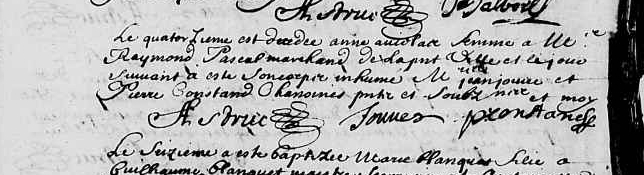 Astruc Jalbert
Le quatorzieme est decedee anne auiolate femme a Me
Raymond Pascal marchand de la pnt Ville et le jour
suivant a este son corps inhume Mrs jean jouve et
Pierre Constand Chanoines pntz et soubz nez et moy
Astruc Jouve pconstand
Le Seizieme a este baptizée Marie blanquet filie a
Guilhaume blanquet maistre